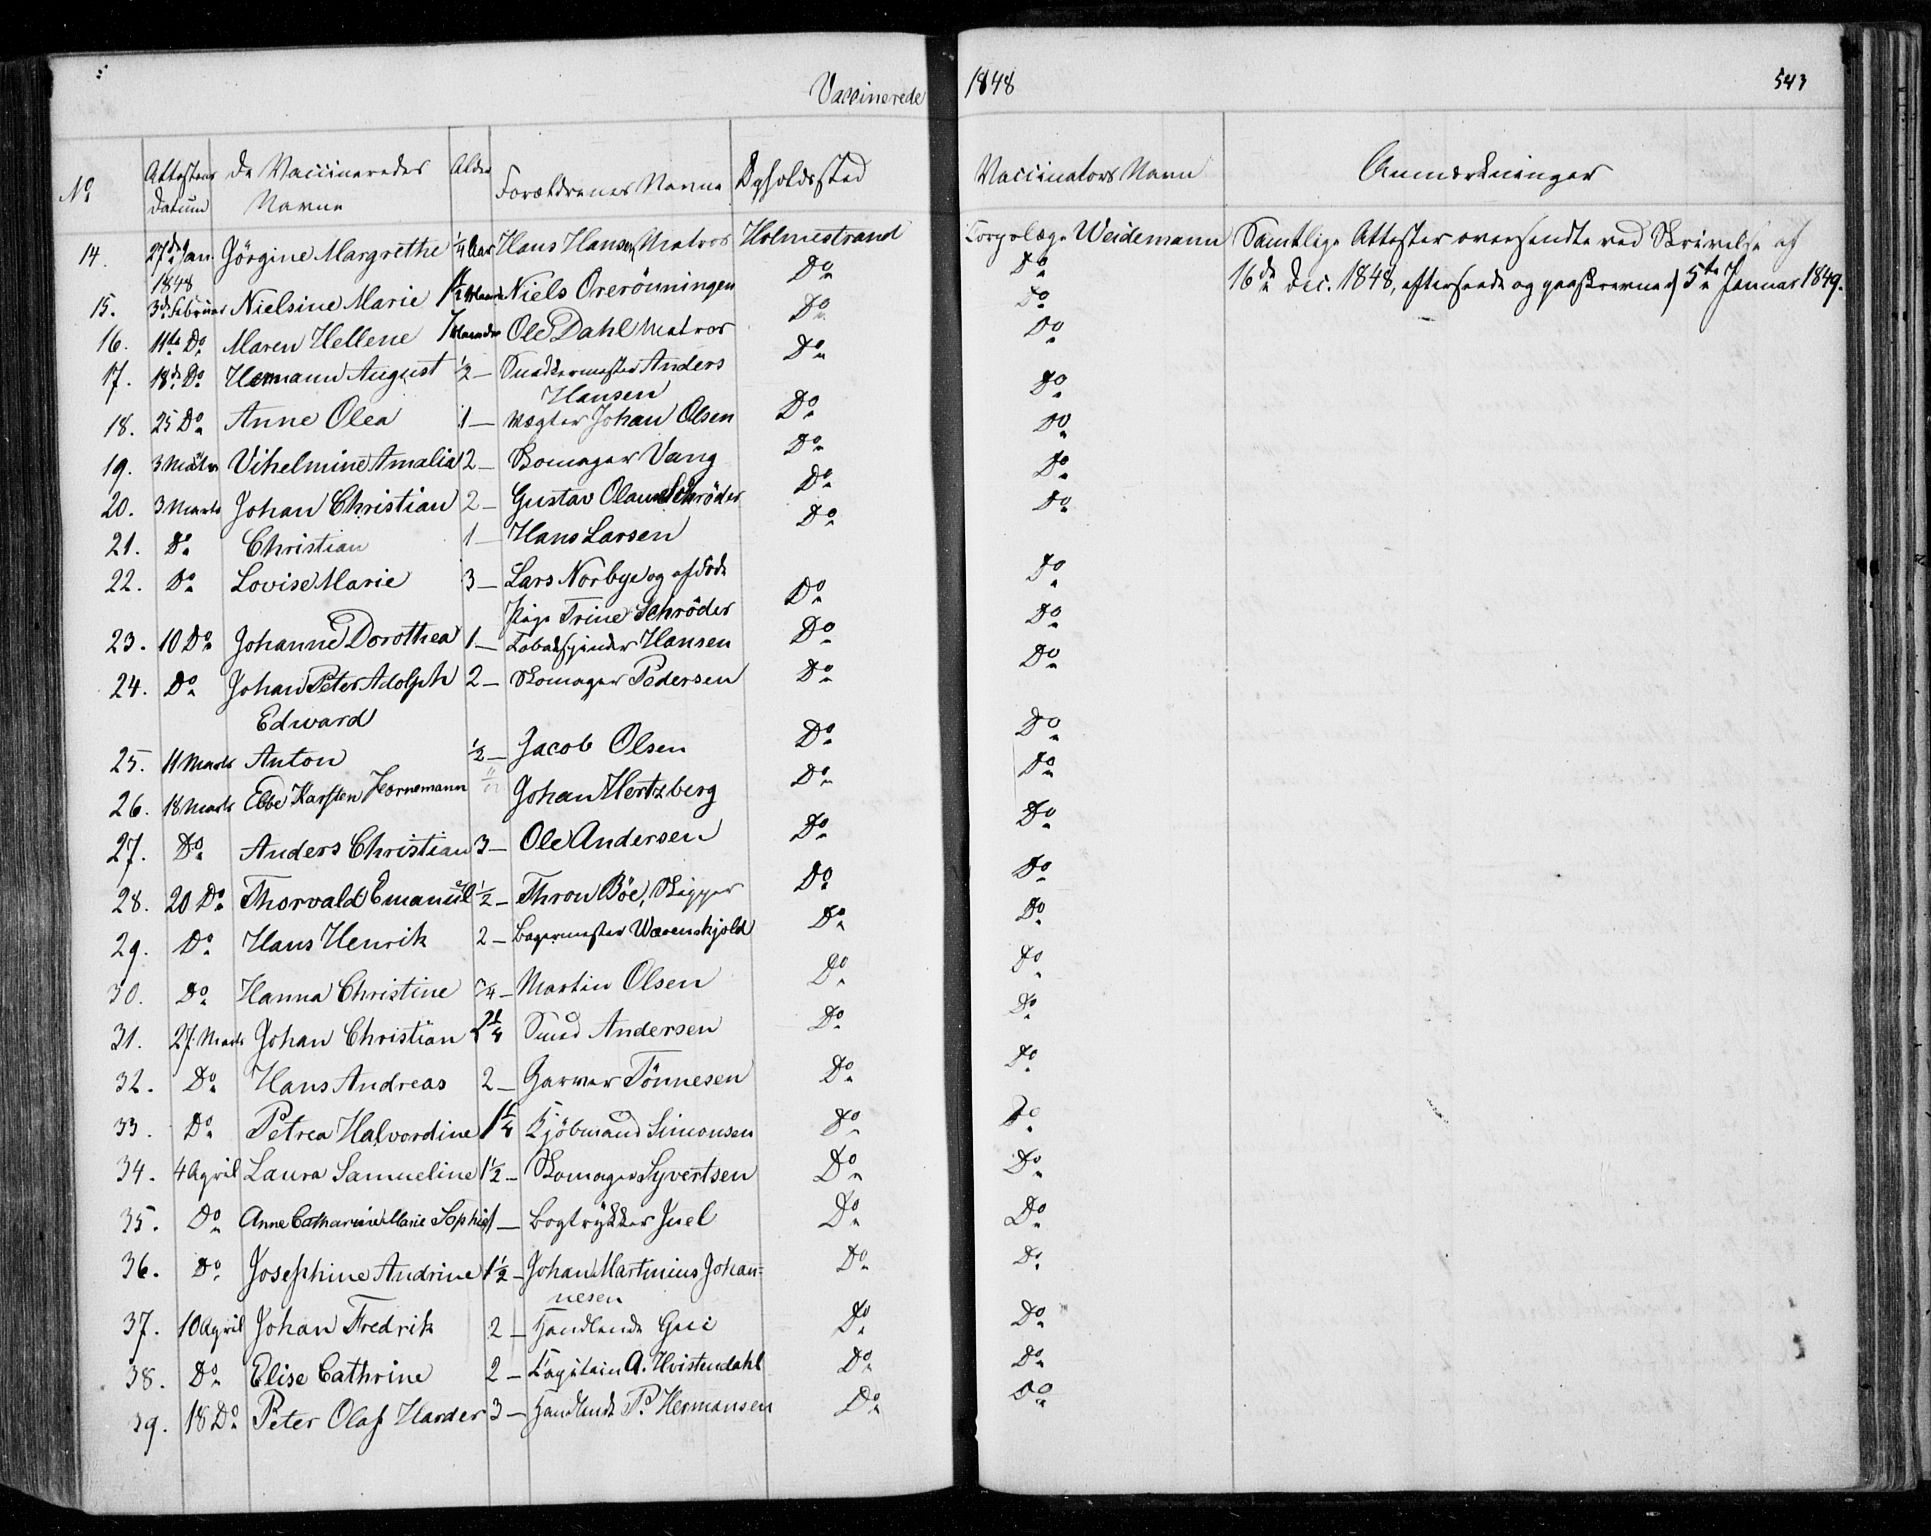 Vaccinerede 1848 543
No Attestens Datum De Vaccineredes Navne Alder Forældrenes Navne Opholdssted Vaccinators Navn Anmærkninger
14. 27de Jan. 1848 Jörgine Margrethe 1/4 Aar Hans Hansen, Matros Holmestrand Corpslæge Weidemann Samtlige Attester oversendte ved Skrivelse af
15. 3de Februar Nielsine Marie Niels Orerönningen Do Do 16de Dec. 1848, efterseede og paaskrevne 5te Januar 1849.
16. 11te Do Maren Hellene 7 Maaneder Ole Dahl Matros Do Do
17. 18de Do Hermann August 1/2 — Snedkermester Anders Do Do
Hansen
18. 25 Do Anne Olea 1 — Vægter Johan Olsen Do Do
19. 3 Marts Vihelmine Amalia 2 — Skomager Vang Do Do
20. 3 Marts Johan Christian 2 — Gustav Olaus Schröder Do Do
21. Do Christian 1 — Hans Larsen Do Do
22. Do Lovise Marie 3 — Lars Norbye og afdöde Do Do
Pige Trine Schröder
23. 10 Do Johanne Dorothea 1 — Tobakspinder Hansen Do Do
24. Do Johan Peter Adolph 2 — Skomager Pedersen Do Do
Edward
25. 11 Marts Anton 1/2 — Jacob Olsen Do Do
26. 18 Marts Ebbe Karsten Hornemann Johan Hertzberg Do Do
27. Do Anders Christian 3 — Ole Andersen Do Do
28. 20 Do Thorvald Emanuel 1/2 — Thron Böe, Skipper Do Do
29. Do Hans Henrik 2 — Bagermester Wærenskjold Do Do
30. Do Hanna Christine 3/4 — Martin Olsen Do Do
31. 27. Marts Johan Christian 2 1/4 Smed Andersen Do Do
32. Do Hans Andreas 2 — Garver Tönnesen Do Do
33. Do Petrea Halvordine 1 1/4 Kjöbmand Simonsen Do Do
34. 4 April Laura Samueline 1 1/2 — Skomager Syvertsen Do Do
35. Do Anne Catharine Marie Sophie 1 — Bogtrykker Juel Do Do
36. Do Josephine Andrine 1 1/2 — Johan Martinius Johan= Do Do
nesen
37. 10 April Johan Fredrik 2 — Handlende Do Do
38. Do Elise Cathrine 2 — Capitain A. Hvistendahl Do Do
39. 18 Do Peter Olaf Harder 3 — Handlende P. Hermansen Do Do